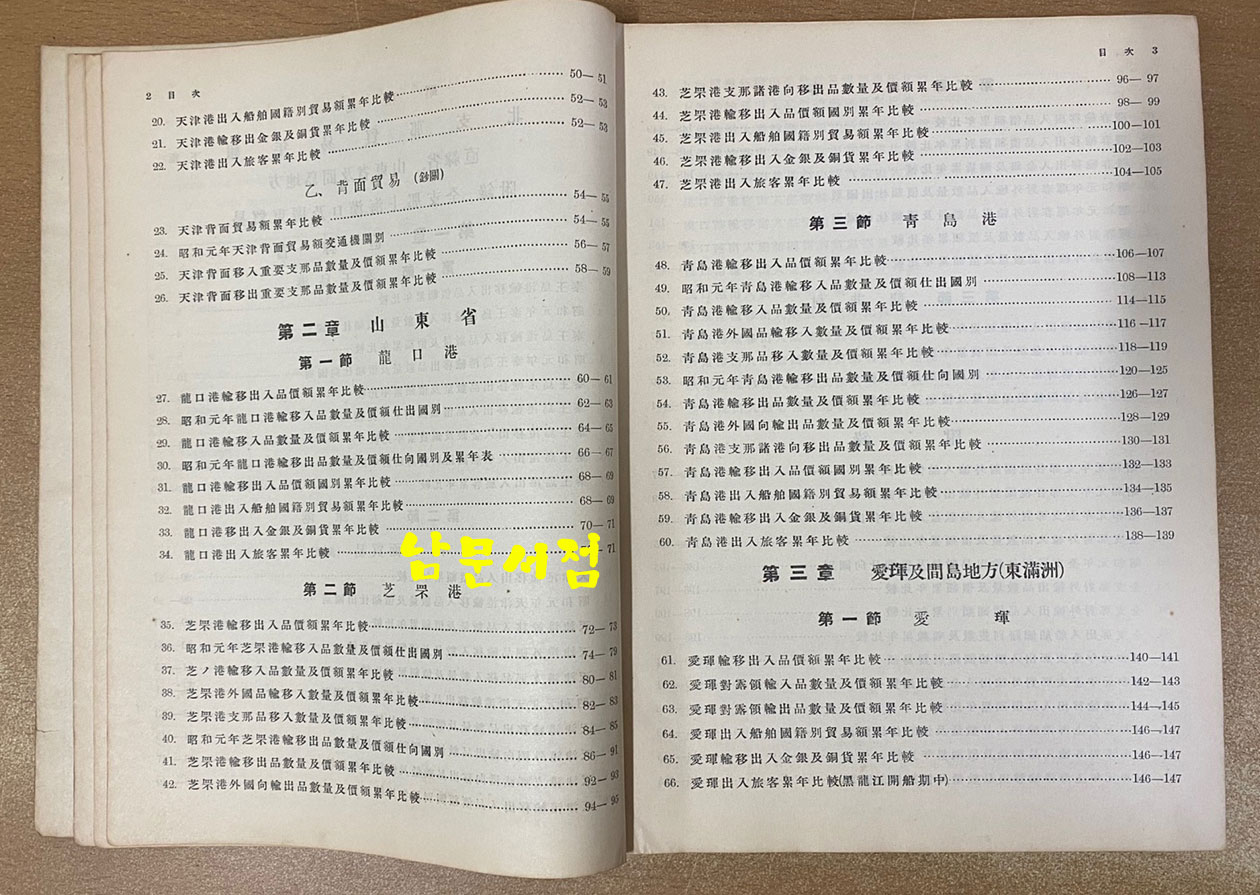 2 目次
20. 天津港出入船舶國籍別貿易額累年比較 50—51
21. 天津港輸移出金銀及銅貨累年比較 52—53
22. 天津港出入旅客累年比較 52—53
乙、背面貿易 (鈔關)
23. 天津背面貿易額累年比較 54—55
24. 昭和元年天津背面貿易額交通機關別 54—55
25. 天津背面移入重要支那品數量及價額累年比較 56—57
26. 天津背面移出重要支那品數量及價額累年比較 58—59
第二章 山東省
第一節 龍口港
27. 龍口港輸移出入品價額累年比較 60—61
28. 昭和元年龍口港輸移入品數量及價額仕出國別 62—63
29. 龍口港輸移入品數量及價額累年比較 64—65
30. 昭和元年龍口港輸移出品數量及價額仕向國別及累年表 66—67
31. 龍口港輸移出入品價額國別累年比較 68—69
32. 龍口港出入船舶國籍別貿易額累年比較 68—69
33. 龍口港移出入金銀及銅貨累年比較 70—71
34. 龍口港出入旅客累年比較 71
남문서점
第二節 芝罘港
35. 芝罘港輸移出入品價額累年比較 72—73
36. 昭和元年芝罘港輸移入品數量及價額仕出國別 74—79
37. 芝ノ港輸移入品數量及價額累年比較 80—81
38. 芝罘港外國品輸移入數量及價額累年比較 82—83
39. 芝罘港支那品移入數量及價額累年比較 84—85
40. 昭和元年芝罘港輸移出品數量及價額仕向國別 86—91
41. 芝罘港輸移出品數量及價額累年比較 92—93
42. 芝罘港外國向輸出品數量及價額累年比較 94—95
目次 3
43. 芝罘港支那諸港向移出品數量及價額累年比較 96—97
44. 芝罘港輸移出入品價額國別累年比較 98—99
45. 芝罘港出入船舶國籍別貿易額累年比較 100—101
46. 芝罘港輸移出入金銀及銅貨累年比較 102—103
47. 芝罘港出入旅客累年比較 104—105
第三節 靑島港
48. 靑島港輸移出入品價額累年比較 106—107
49. 昭和元年靑島港輸移入品數量及價額仕出國別 108—113
50. 靑島港輸移入品數量及價額累年比較 114—115
51. 靑島港外國品輸移入數量及價額累年比較 116—117
52. 靑島港支那品移入數量及價額累年比較 118—119
53. 昭和元年靑島港輸移出品數量及價額仕向國別 120—125
54. 靑島港輸移出品數量及價額累年比較 126—127
55. 靑島港外國向輸出品數量及價額累年比較 128—129
56. 靑島港支那諸港向移出品數量及價額累年比較 130—131
57. 靑島港輸移出入品價額國別累年比較 132—133
58. 靑島港出入船舶國籍別貿易額累年比較 134—135
59. 靑島港輸移出入金銀及銅貨累年比較 136—137
60. 靑島港出入旅客累年比較 138—139
第三章 愛琿及間島地方(東滿洲)
第一節 愛琿
61. 愛琿輸移出入品價額累年比較 140—141
62. 愛琿對露領輸入品數量及價額累年比較 142—143
63. 愛琿對露領輸出品數量及價額累年比較 144—145
64. 愛琿出入船舶國籍別貿易額累年比較 146—147
65. 愛琿輸移出入金銀及銅貨累年比較 146—147
66. 愛琿出入旅客累年比較(黑龍江開船期中) 146—147